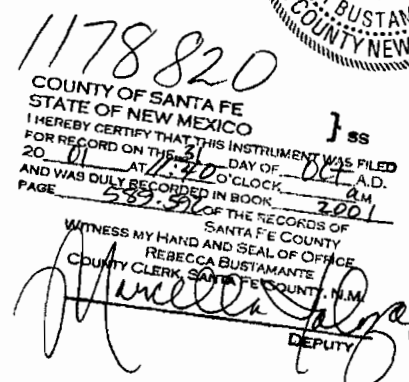 BUSTAM
COUNTY NEW
1178820
COUNTY OF SANTA FE
STATE OF NEW MEXICO } SS
I HEREBY CERTIFY THAT THIS INSTRUMENT WAS FILED
FOR RECORD ON THE 31 DAY OF OCT A.D.
20 01 AT 11:20 O'CLOCK a M
AND WAS DULY RECORDED IN BOOK 2001
PAGE 589-592 OF THE RECORDS OF
SANTA FE COUNTY
WITNESS MY HAND AND SEAL OF OFFICE
REBECCA BUSTAMANTE
COUNTY CLERK, SANTA FE COUNTY, N.M.
Marcella
DEPUTY